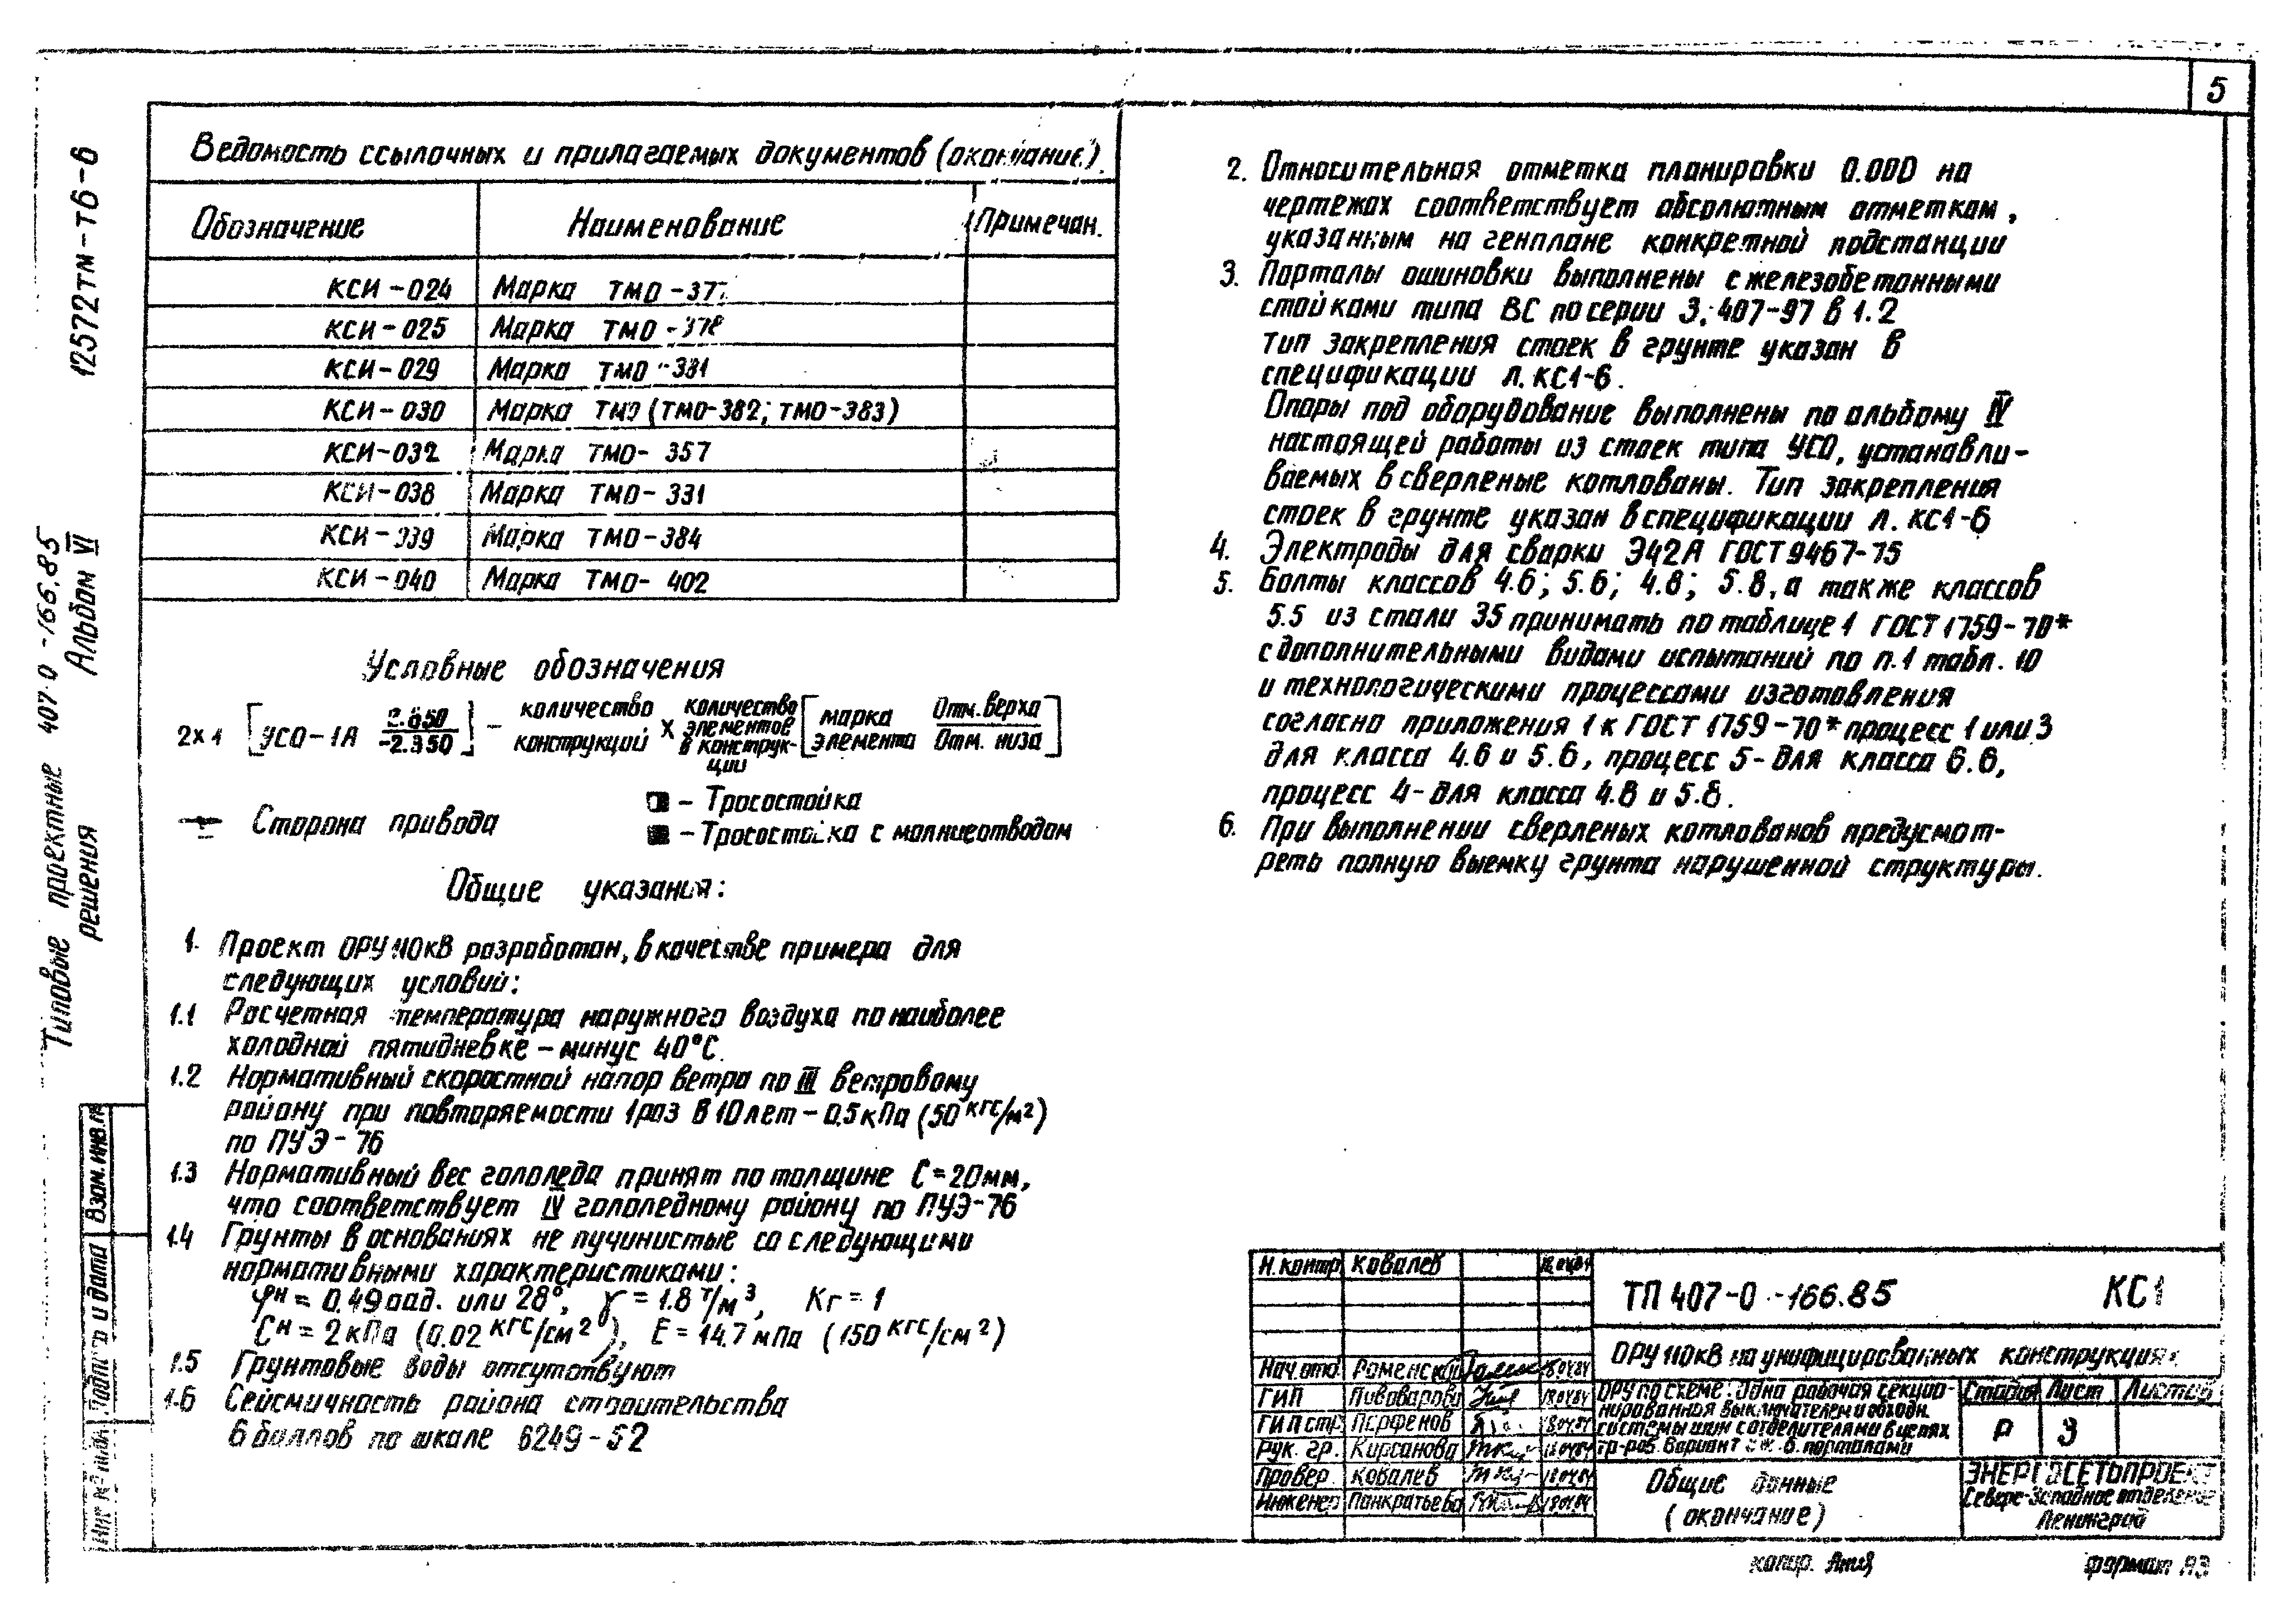 5
12572тм-т6-6
Типовые проектные решения 407-0-166.85 Альбом VI
Ведомость ссылочных и прилагаемых документов (окончание).
Обозначение Наименование Примечан.
КСИ-024 Марка ТМО-377
КСИ-025 Марка ТМО-378
КСИ-029 Марка ТМО-381
КСИ-030 Марка ТМО (ТМО-382; ТМО-383)
КСИ-032 Марка ТМО-357
КСИ-038 Марка ТМО-331
КСИ-039 Марка ТМО-384
КСИ-040 Марка ТМО-402
Условные обозначения
2×1 [УСО-1А 2.650/-2.350] - количество конструкций × количество элементов в конструкции [марка элемента Отм. верха/Отм. низа]
Сторона привода
- Тросостойка
- Тросостойка с молниеотводом
Общие указания:
1. Проект ОРУ 110кВ разработан, в качестве примера для
следующих условий:
1.1 Расчетная температура наружного воздуха по наиболее
холодной пятидневке - минус 40°С.
1.2 Нормативный скоростной напор ветра по III ветровому
району при повторяемости 1 раз в 10 лет - 0.5 кПа (50 кгс/м²)
по ПУЭ-76
1.3 Нормативный вес гололеда принят по толщине С=20мм,
что соответствует IV гололедному району по ПУЭ-76
1.4 Грунты в основаниях не пучинистые со следующими
нормативными характеристиками:
φн = 0.49 рад. или 28°, γ = 1.8 т/м³, Кг = 1
Сн = 2 кПа (0.02 кгс/см²), Е = 14.7 мПа (150 кгс/см²)
1.5 Грунтовые воды отсутствуют
1.6 Сейсмичность района строительства
6 баллов по шкале 6249-52
2. Относительная отметка планировки 0.000 на
чертежах соответствует абсолютным отметкам,
указанным на генплане конкретной подстанции
3. Порталы ошиновки выполнены с железобетонными
стойками типа ВС по серии 3.407-97 в 1.2
Тип закрепления стоек в грунте указан в
спецификации л. КС1-6.
Опоры под оборудование выполнены по альбому IV
настоящей работы из стоек типа УСО, устанавли-
ваемых в сверленые котлованы. Тип закрепления
стоек в грунте указан в спецификации л. КС1-6
4. Электроды для сварки Э42А ГОСТ 9467-75
5. Болты классов 4.6; 5.6; 4.8; 5.8, а также классов
5.5 из стали 35 принимать по таблице 1 ГОСТ 1759-70*
с дополнительными видами испытаний по п.1 табл. 10
и технологическими процессами изготовления
согласно приложения 1 к ГОСТ 1759-70* процесс 1 или 3
для класса 4.6 и 5.6, процесс 5- для класса 6.6,
процесс 4- для класса 4.8 и 5.8.
6. При выполнении сверленых котлованов предусмот-
реть полную выемку грунта нарушенной структуры.
Взам. инв. №
Подпись и дата
Инв. № подл.
Н. контр. Ковалев
Нач. отд. Роменский 18.04.84
ГИП Пивоваров 18.04.84
ГИП стр. Парфенов 18.04.84
Рук. гр. Кирсанова 18.04.84
Провер. Ковалев 18.04.84
Инженер Панкратьева 18.04.84
ТП 407-0-166.85 КС1
ОРУ 110кВ на унифицированных конструкциях
ОРУ по схеме: Одна рабочая секцио-
нированная выключателем и обходн.
системы шин с отделителями в цепях
тр-ров. Вариант с ж.б. порталами
Стадия Лист Листов
Р 3
Общие данные
(окончание)
ЭНЕРГОСЕТЬПРОЕКТ
Северо-Западное отделение
Ленинград
копир.
формат А3